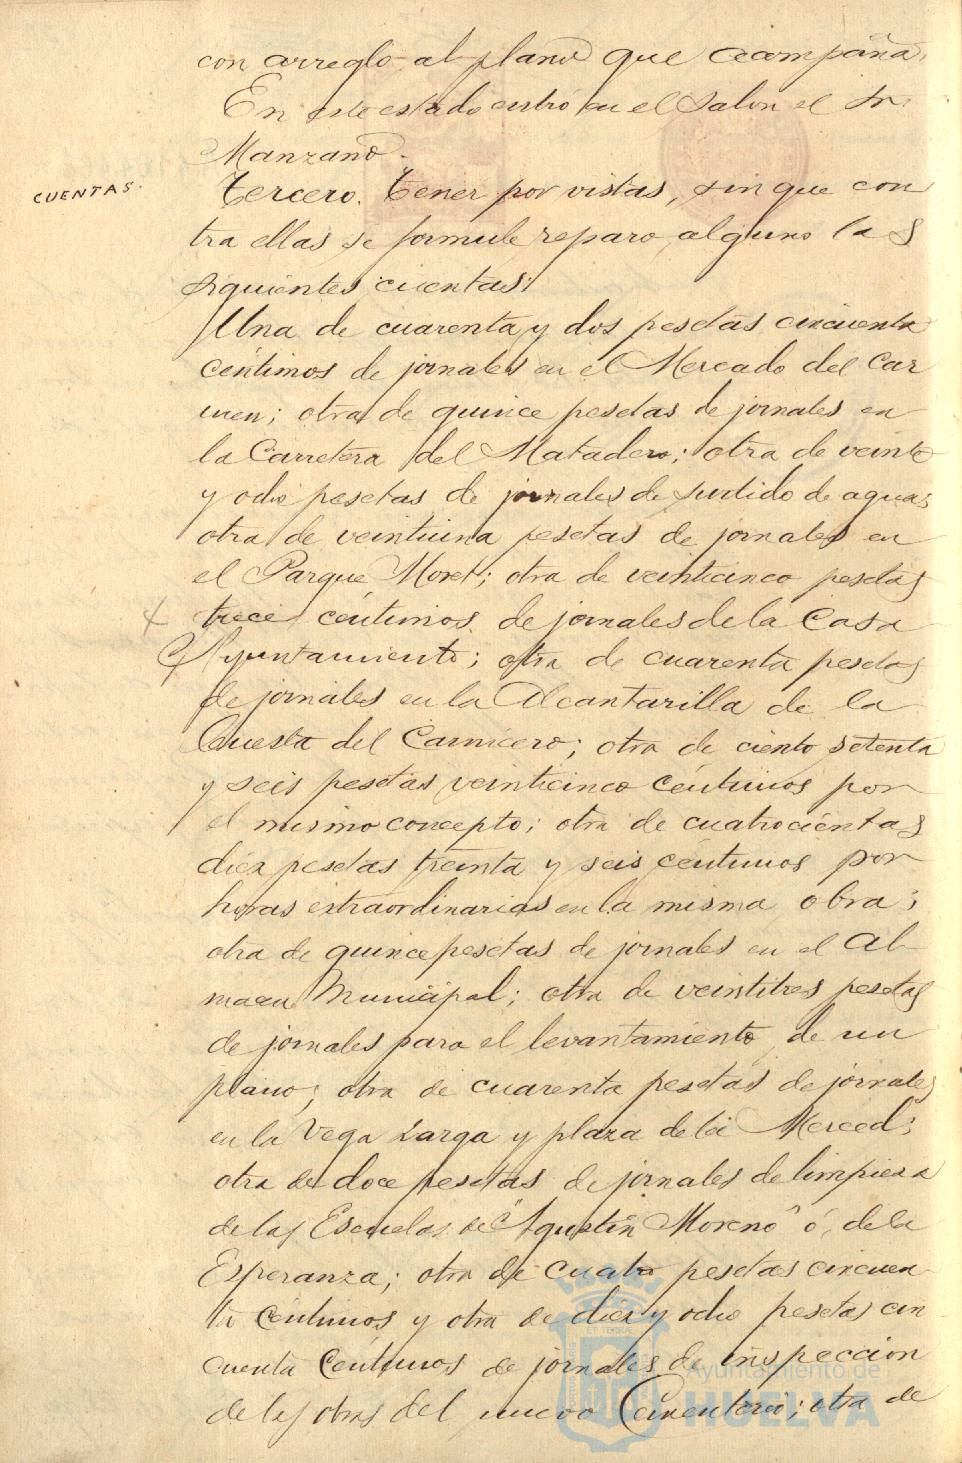 con arreglo al plano que acompaña.
En este estado entró en el Salon el Sr.
Manzano.
CUENTAS.
Tercero. Tener por vistas, sin que con
tra ellas se formule reparo alguno las
siguientes cuentas:
Una de cuarenta y dos pesetas cincuenta
céntimos de jornales en el Mercado del Car
men; otra de quince pesetas de jornales en
la Carretera del Matadero; otra de veinte
y ocho pesetas de jornales de surtido de aguas
otra de veintiuna pesetas de jornales en
el Parque Moret; otra de veinticinco pesetas
trece céntimos de jornales de la Casa
Ayuntamiento; otra de cuarenta pesetas
de jornales en la Alcantarilla de la
Cuesta del Carnicero; otra de ciento setenta
y seis pesetas veinticinco céntimos por
el mismo concepto; otra de cuatrocientas
diez pesetas treinta y seis céntimos por
horas extraordinarias en la misma obra;
otra de quince pesetas de jornales en el Al-
macen Municipal; otra de veintitres pesetas
de jornales para el levantamiento de un
plano; otra de cuarenta pesetas de jornales
en la Vega Larga y plaza de la Merced;
otra de doce pesetas de jornales de limpieza
de las Escuelas de "Agustín Moreno" ó de la
Esperanza; otra de cuatro pesetas cincuen
ta céntimos y otra de diez y ocho pesetas cin
cuenta céntimos de jornales de inspeccion
de las obras del nuevo Cementerio; otra de
Ayuntamiento de
HUELVA